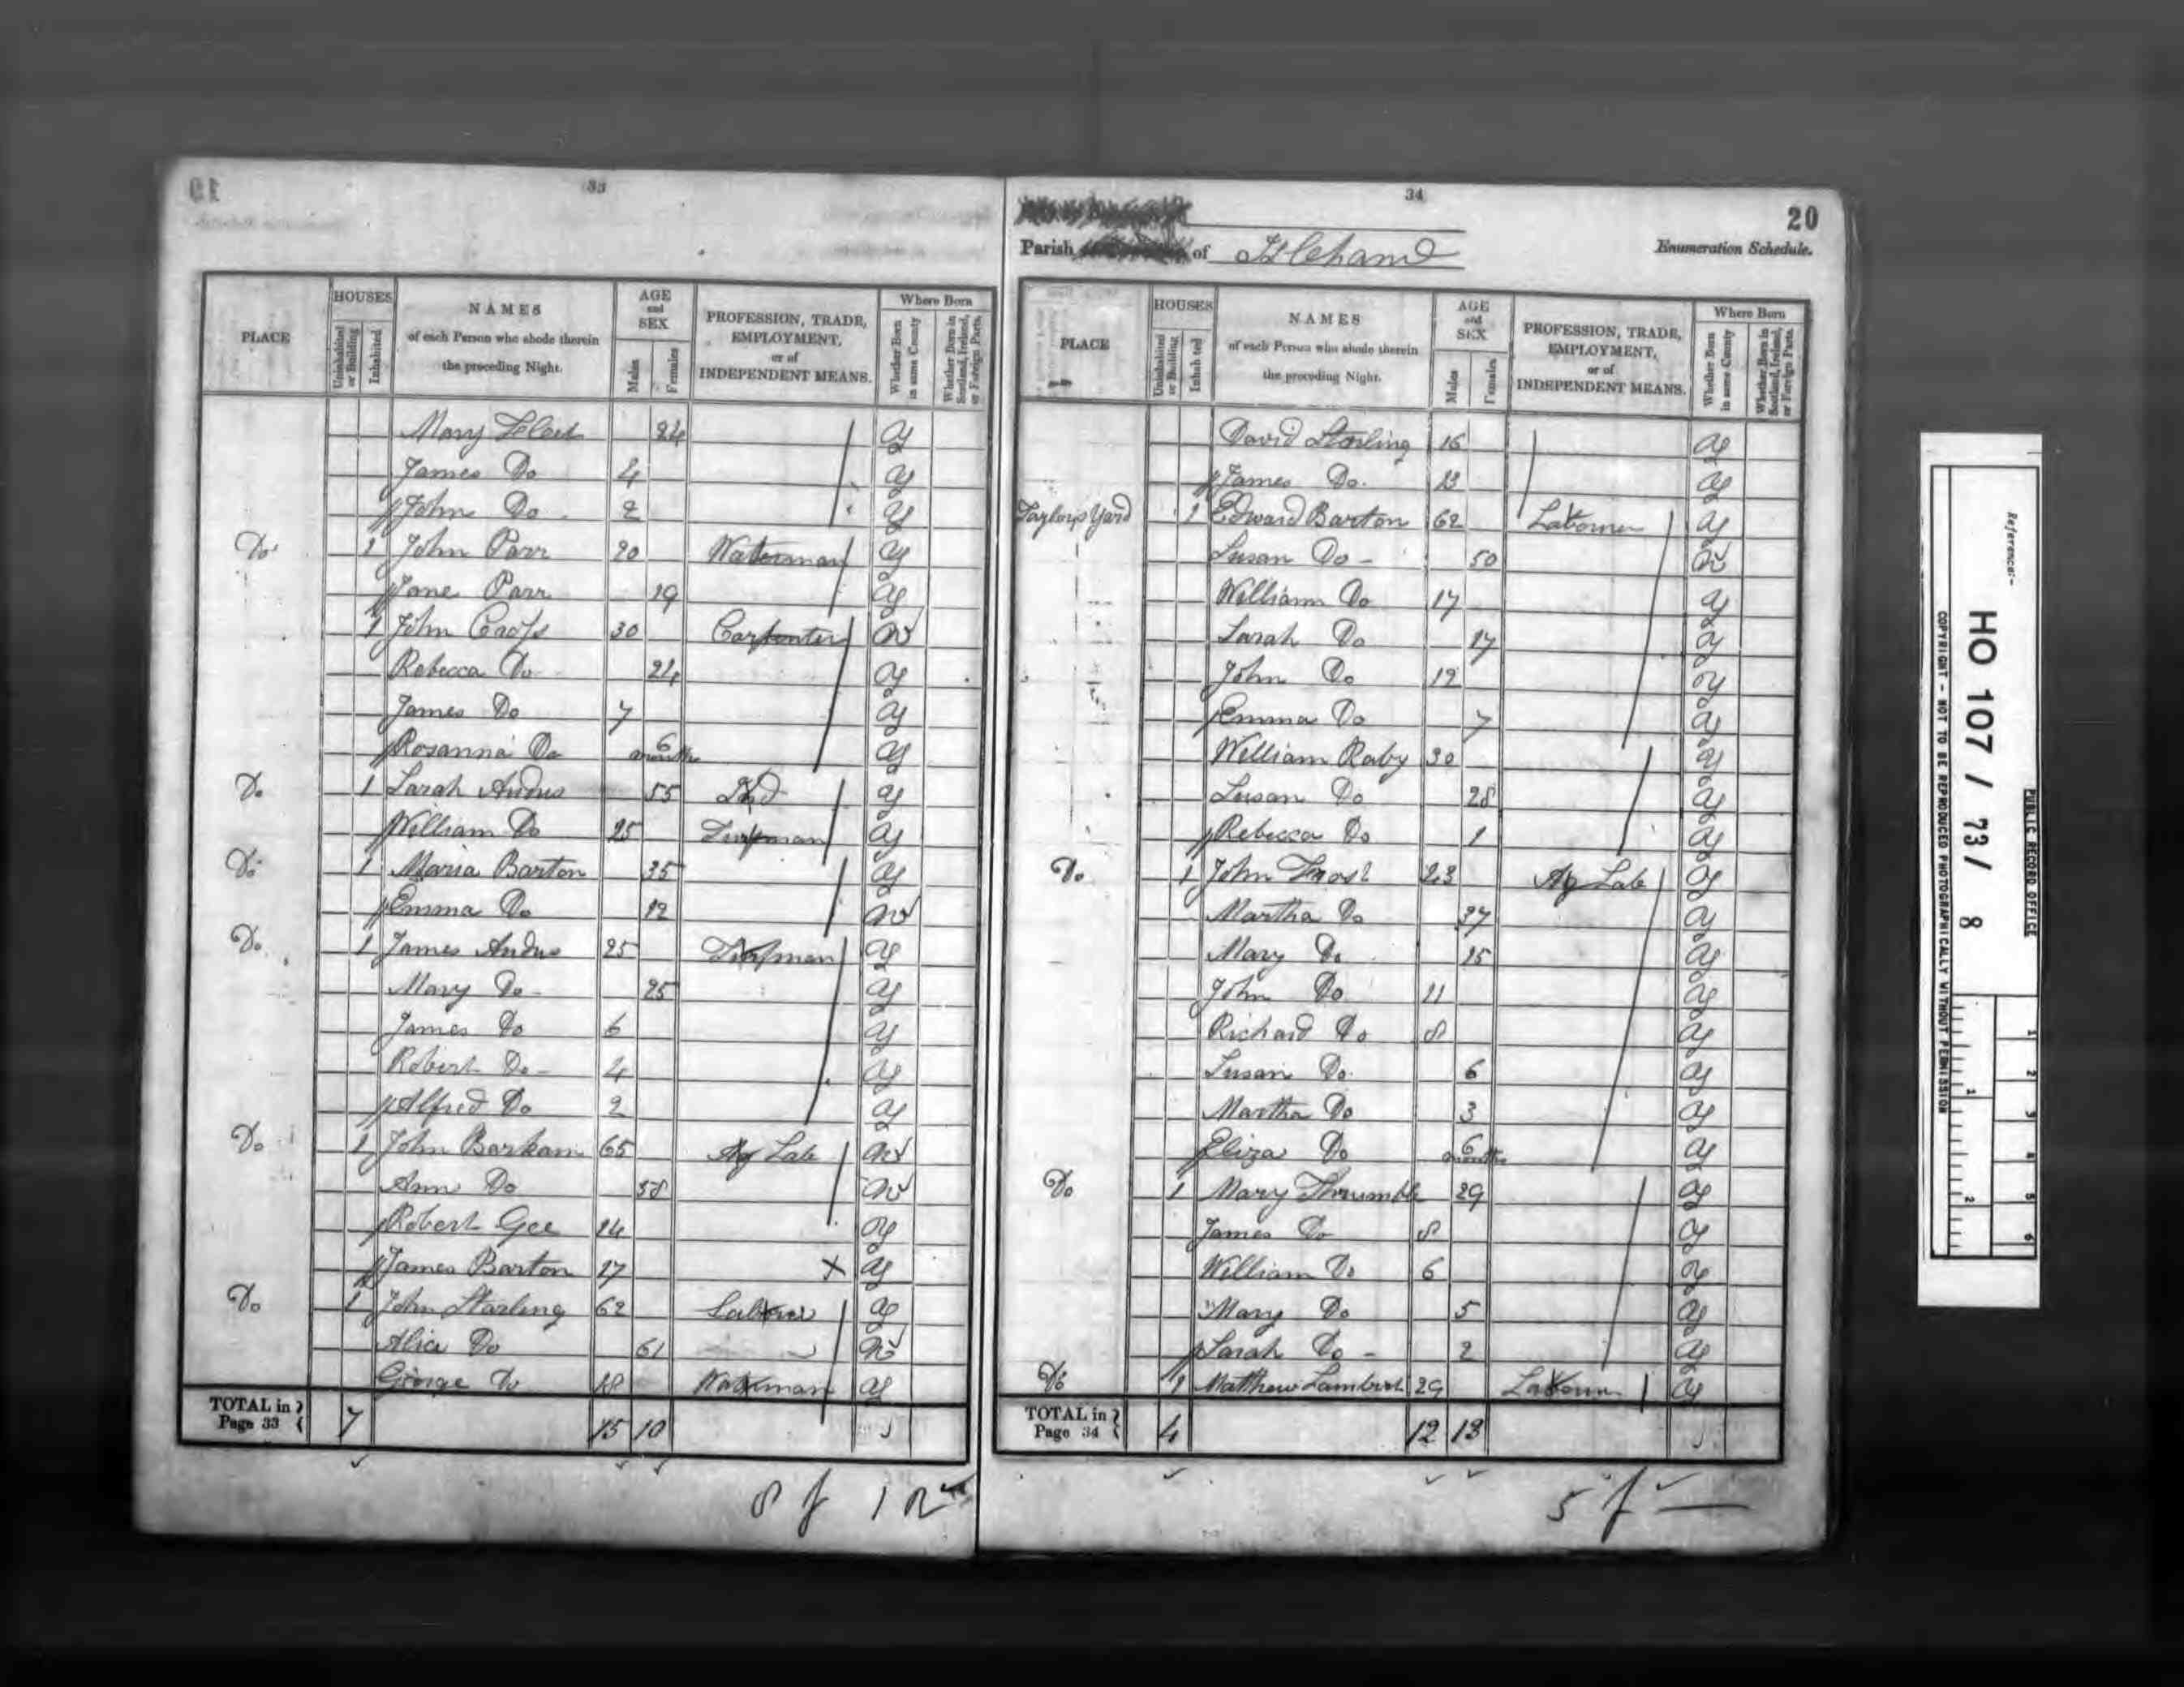 33
PLACE
HOUSES
Uninhabited or Building
Inhabited
NAMES
of each Person who abode therein
the preceding Night.
AGE and SEX
Males
Females
PROFESSION, TRADE, EMPLOYMENT, or of INDEPENDENT MEANS.
Where Born
Whether Born in same County
Whether Born in Scotland, Ireland, or Foreign Parts.
Mary 24 y
James Do 4 y
John Do 2 y
Do 1 John Parr 20 Waterman y
Jane Parr 19 y
1 John 30 Carpenter N
Rebecca Do 24 y
James Do 7 y
Rosanna Do 6 months y
Do 1 Sarah 55 Ind y
William Do 25 y
Do 1 Maria Barton 35 y
Emma Do 12 N
Do 1 James 25 y
Mary Do 25 y
James Do 6 y
Robert Do 4 y
Alfred Do 2 y
Do 1 John Barkam 65 Ag Lab N
Ann Do 58 N
Robert Gee 14 y
James Barton 17 y
Do 1 John Starling 62 y
Alice Do 61 N
George Do 18 Waterman y
TOTAL in Page 33 7 15 10
34
20
Parish of Isleham
Enumeration Schedule.
PLACE
HOUSES
Uninhabited or Building
Inhabited
NAMES
of each Person who abode therein
the preceding Night.
AGE and SEX
Males
Females
PROFESSION, TRADE, EMPLOYMENT, or of INDEPENDENT MEANS.
Where Born
Whether Born in same County
Whether Born in Scotland, Ireland, or Foreign Parts.
David Starling 16 y
James Do. 13 y
Taylors Yard 1 Edward Barton 62 Labourer y
Susan Do 50 N
William Do 17 y
Sarah Do 17 y
John Do 12 y
Emma Do 7 y
William Raby 30 y
Susan Do 28 y
Rebecca Do 1 y
Do 1 John Frost 43 Ag Lab y
Martha Do 37 y
Mary Do 15 y
John Do 11 y
Richard Do 8 y
Susan Do 6 y
Martha Do 3 y
Eliza Do 6 months y
Do 1 Mary Thrumble 29 y
James Do 8 y
William Do 6 y
Mary Do 5 y
Sarah Do 2 y
Do 1 Matthew Lambert 29 Labourer y
TOTAL in Page 34 4 12 13
Reference:-
HO 107 / 73 / 8
PUBLIC RECORD OFFICE
COPYRIGHT - NOT TO BE REPRODUCED PHOTOGRAPHICALLY WITHOUT PERMISSION
1 2 3 4 5 6
1 2